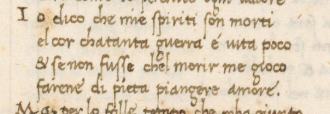 I o dico che mie spiriti son morti
el cor chatanta guerra é vita poco
& se non fusse chel morir me gioco
farene di pieta piangere amore.